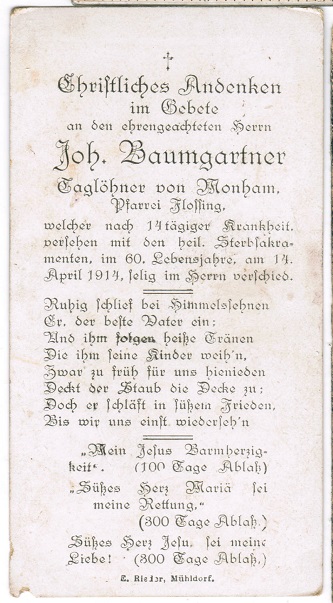 Christliches Andenken
im Gebete
an den ehrengeachteten Herrn
Joh. Baumgartner
Taglöhner von Monham,
Pfarrei Flossing,
welcher nach 14 tägiger Krankheit,
versehen mit den heil. Sterbsakra-
menten, im 60. Lebensjahre, am 14.
April 1914, selig im Herrn verschied.
Ruhig schlief bei Himmelssehnen
Er, der beste Vater ein;
Und ihm folgen heiße Tränen
Die ihm seine Kinder weih'n,
Zwar zu früh für uns hienieden
Deckt der Staub die Decke zu;
Doch er schläft in süßem Frieden,
Bis wir uns einst wiederseh'n
„Mein Jesus Barmherzig-
keit“. (100 Tage Ablaß)
„Süßes Herz Mariä sei
meine Rettung.“
(300 Tage Ablaß.)
Süßes Herz Jesu, sei meine
Liebe! (300 Tage Ablaß.)
E. Rieder, Mühldorf.